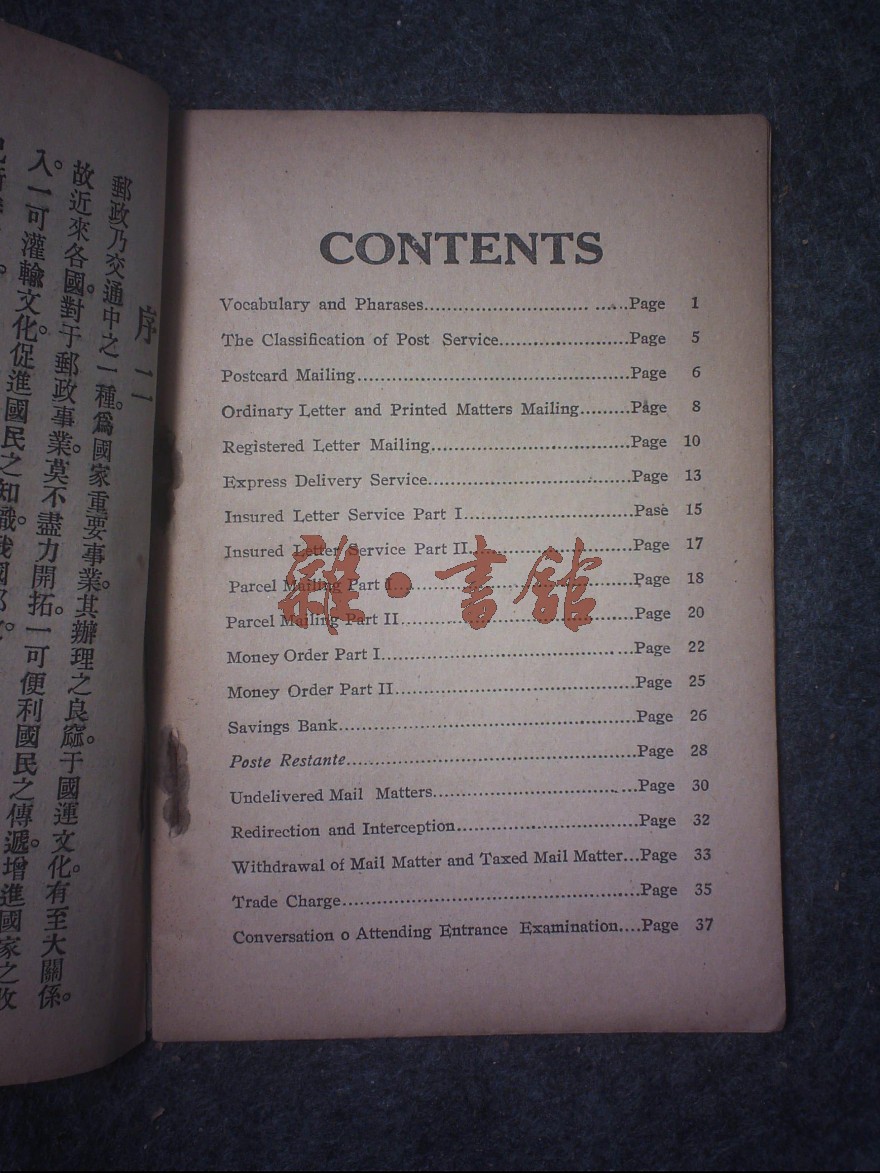 序二
郵政乃交通中之一種。爲國家重要事業。其辦理之良窳。于國運文化。有至大關係。
故近來各國。對于郵政事業。莫不盡力開拓。一可便利國民之傳遞。增進國家之收
入。一可灌輸文化。促進國民之知識。我國郵
CONTENTS
Vocabulary and Pharases..............................Page 1
The Classification of Post Service......................Page 5
Postcard Mailing..............................................Page 6
Ordinary Letter and Printed Matters Mailing.........Page 8
Registered Letter Mailing.................................Page 10
Express Delivery Service.................................Page 13
Insured Letter Service Part I............................Pase 15
Insured Letter Service Part II...........................Page 17
Parcel Mailing Part I........................................Page 18
Parcel Mailing Part II.......................................Page 20
Money Order Part I..........................................Page 22
Money Order Part II........................................Page 25
Savings Bank..................................................Page 26
Poste Restante................................................Page 28
Undelivered Mail Matters.................................Page 30
Redirection and Interception..............................Page 32
Withdrawal of Mail Matter and Taxed Mail Matter...Page 33
Trade Charge..................................................Page 35
Conversation o Attending Entrance Examination....Page 37
雜·書館